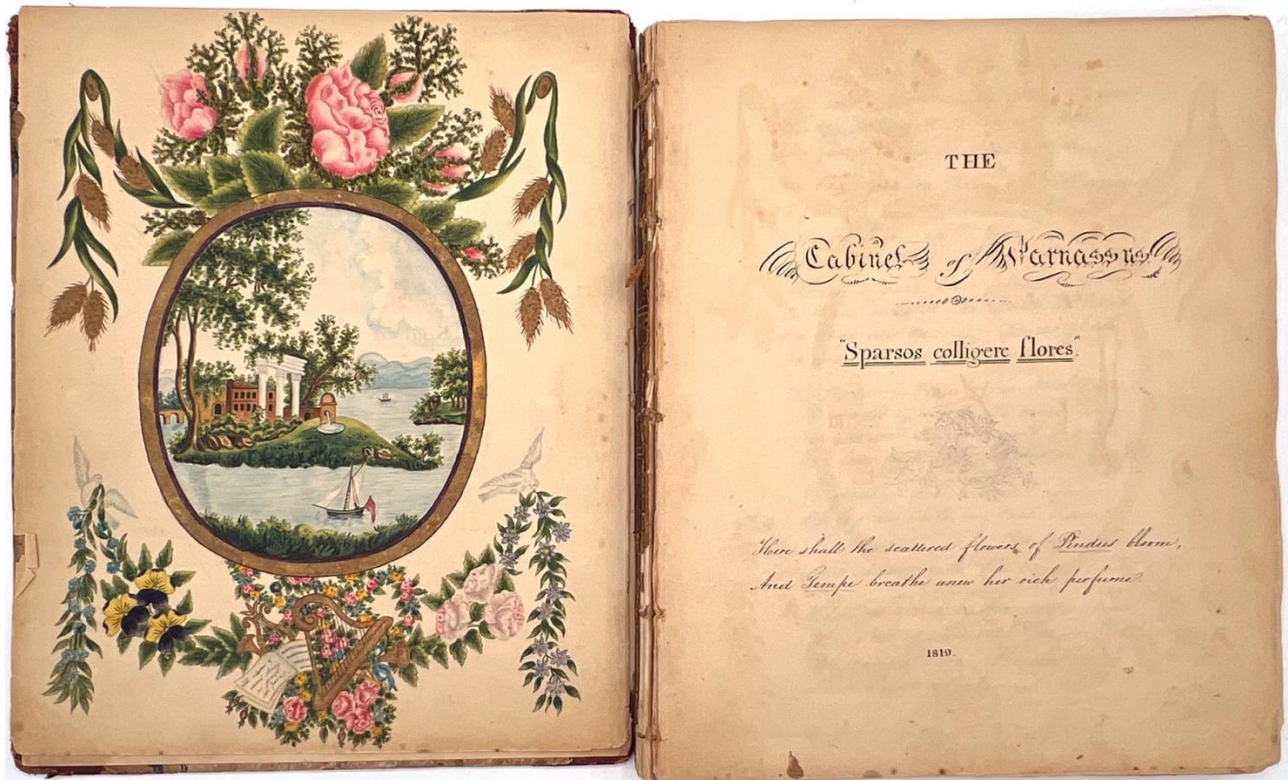 THE
Cabinet of Parnassus
"Sparsos colligere flores".
Here shall the scattered flowers of Pindus bloom,
And Tempe breathe anew her rich perfume.
1819.